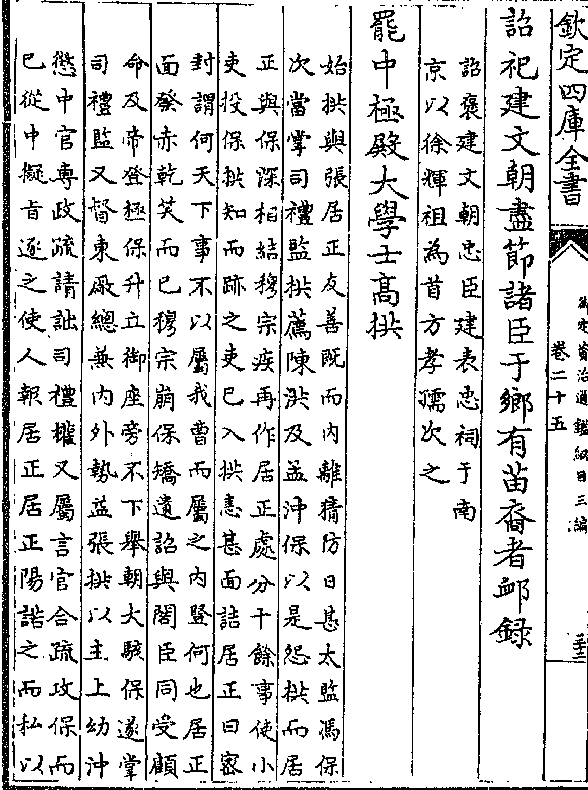 欽定四庫全書
御定資治通鑑綱目三編
卷二十五
詔祀建文朝盡節諸臣于鄉有苗裔者卹錄
詔褒建文朝忠臣建表忠祠于南
京以徐輝祖為首方孝孺次之
罷中極殿大學士高拱
始拱與張居正友善既而內離猜防日甚太監馮保
次當掌司禮監拱薦陳洪及孟沖保以是怨拱而居
正與保深相結穆宗疾再作居正處分十餘事使小
吏投保拱知而跡之吏已入拱恚甚面詰居正曰密
封謂何天下事不以屬我曹而屬之內豎何也居正
面發赤乾笑而已穆宗崩保矯遺詔與閣臣同受顧
命及帝登極保升立御座旁不下舉朝大駭保遂掌
司禮監又督東厰總兼內外勢益張拱以主上幼沖
懲中官專政疏請詘司禮權又屬言官合疏攻保而
已從中擬旨逐之使人報居正居正陽諾之而私以